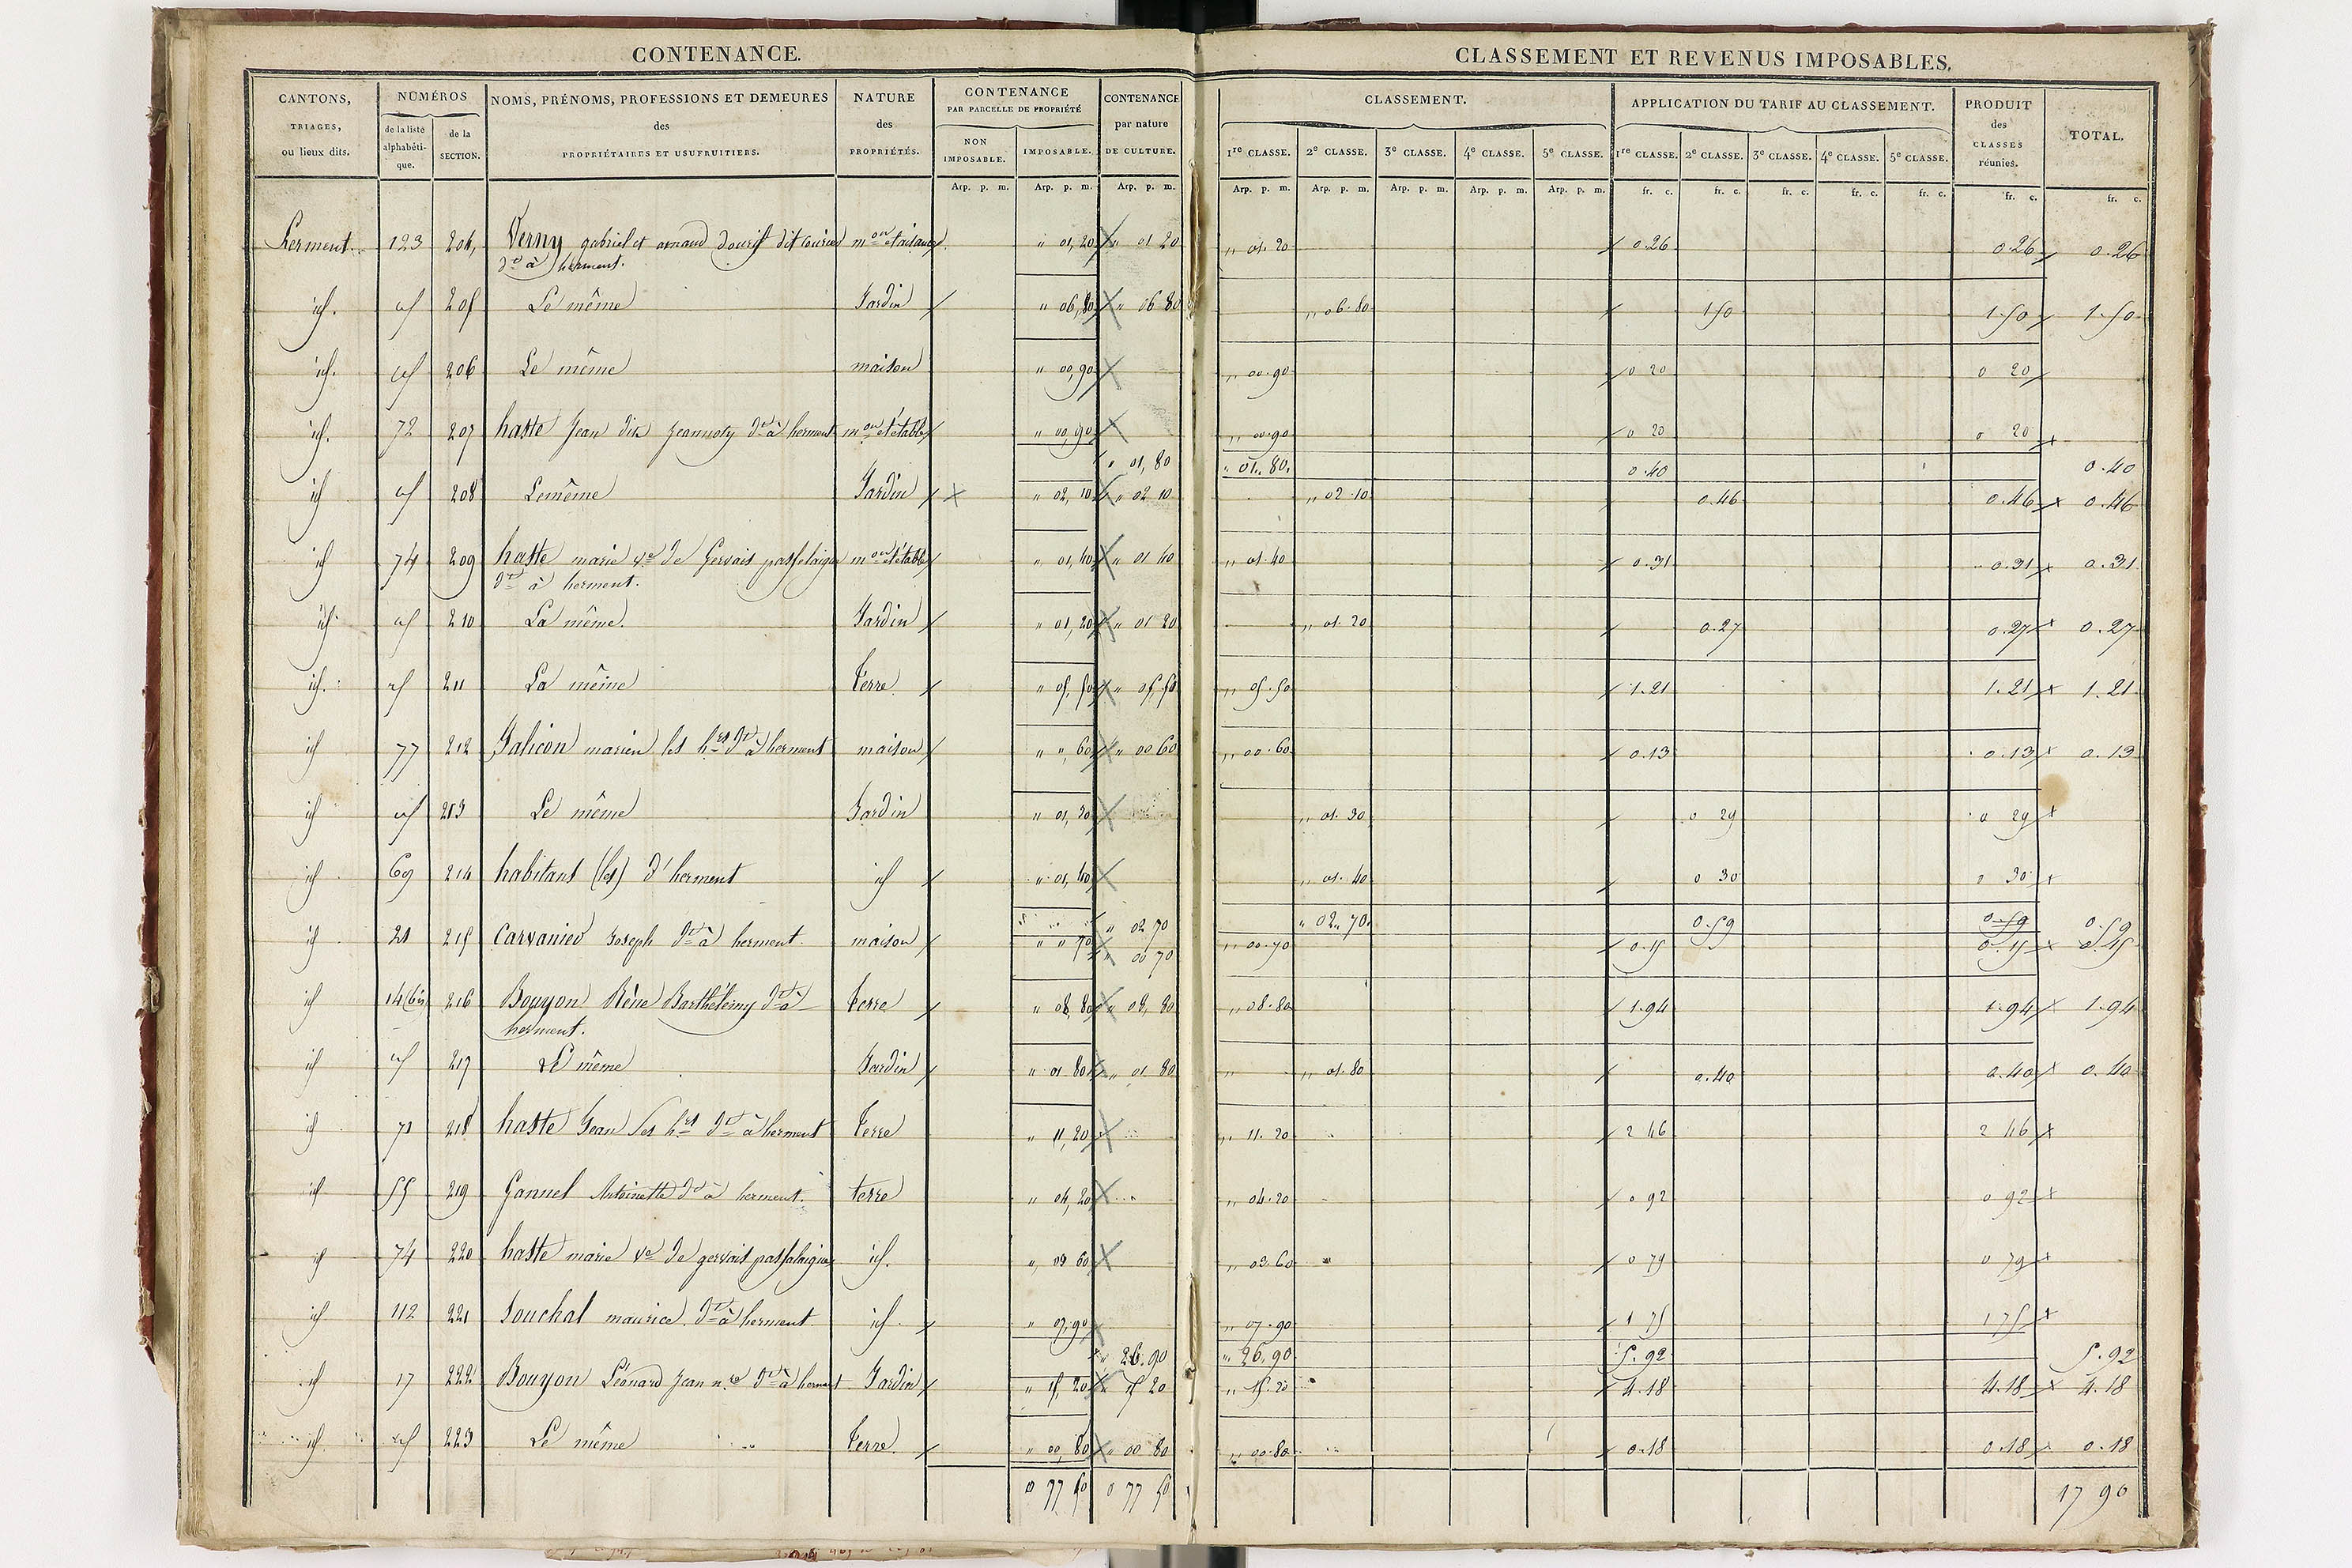 CONTENANCE.
CANTONS, TRIAGES, ou lieux dits. | NUMÉROS de la liste alphabétique. | de la SECTION. | NOMS, PRÉNOMS, PROFESSIONS ET DEMEURES des PROPRIÉTAIRES ET USUFRUITIERS. | NATURE des PROPRIÉTÉS. | CONTENANCE PAR PARCELLE DE PROPRIÉTÉ NON IMPOSABLE. | IMPOSABLE. | CONTENANCE par nature DE CULTURE.
Arp. p. m. | Arp. p. m. | Arp. p. m.
CLASSEMENT ET REVENUS IMPOSABLES.
CLASSEMENT. | APPLICATION DU TARIF AU CLASSEMENT. | PRODUIT des CLASSES réunies. | TOTAL.
1re CLASSE. | 2e CLASSE. | 3e CLASSE. | 4e CLASSE. | 5e CLASSE. | 1re CLASSE. | 2e CLASSE. | 3e CLASSE. | 4e CLASSE. | 5e CLASSE.
Arp. p. m. | Arp. p. m. | Arp. p. m. | Arp. p. m. | Arp. p. m. | fr. c. | fr. c. | fr. c. | fr. c. | fr. c. | fr. c. | fr. c.
herment. | 123 | 204 | Verny gabriel et arnaud | " 01,20 | " 01 20 | ,, 01.20 | 0.26 | 0.26 | 0.26
dt à herment.
id. | id | 205 | Le même | Jardin | " 06,80 | " 06 80 | ,, 06.80 | 1 50 | 1.50 | 1.50
id. | id | 206 | Le même | maison | " 00,90 | ,, 00.90 | 0 20 | 0 20
id. | 72 | 207 | haste Jean dit Jeannoty dt à herment | mon et étable | " 00,90 | ,, 00.90 | 0 20 | 0 20
" 01,80 | " 01,80 | 0.40 | 0.40
id | id | 208 | Le même | Jardin | " 02,10 | " 02 10 | ,, 02.10 | 0.46 | 0.46 | 0.46
id | 74 | 209 | haste marie ve de Gervais passelaigue | mon et étable | " 01,40 | " 01 40 | ,, 01.40 | 0.31 | 0.31 | 0.31
dt à herment.
id. | id | 210 | La même. | Jardin | " 01,20 | " 01 20 | ,, 01.20 | 0.27 | 0.27 | 0.27
id. | id | 211 | La même | terre | " 05,50 | " 05,50 | ,, 05.50 | 1.21 | 1.21 | 1.21
id | 77 | 212 | Jalicon marien les hrs dt à herment | maison | " " 60 | " 00 60 | ,, 00.60 | 0.13 | 0.13 | 0.13
id | id | 213 | Le même | Jardin | " 01,30 | ,, 01.30 | 0 29 | 0 29
id | 69 | 214 | habitans (les) d'herment | id | " 01,40 | ,, 01.40 | 0 30 | 0 30
" 02 70 | " 02,,70 | 0.59 | 0.59 | 0.59
id | 21 | 215 | Joseph dt à herment. | maison | " " 70 | 00 70 | ,, 00.70 | 0.15 | 0.15 | 0.15
id | 14(bis) | 216 | Bouyon Rène Barthélemy dt à | terre | " 08,80 | " 08,80 | ,, 08.80 | 1.94 | 1.94 | 1.94
herment.
id | id | 217 | Le même | Jardin | " 01 80 | " 01 80 | ,, 01.80 | 0.40 | 0.40 | 0.40
id | 71 | 218 | haste Jean les hrs dt à herment | terre | " 11,20 | ,, 11.20 | 2 46 | 2 46
id | 55 | 219 | Gannel Antoinette dt à herment. | terre | " 04,20 | ,, 04.20 | 0 92 | 0 92
id | 74 | 220 | haste marie ve de gervais passelaigue | id. | " 03 60 | ,, 03.60 | 0 79 | 0 79
id | 112 | 221 | Souchal maurice. dt à herment | id. | " 07,90 | ,, 07.90 | 1 75 | 1 75
" 26.90 | " 26.90 | 5.92 | 5.92
id | 17 | 222 | Bouyon Léonard Jean nre dt à herment | Jardin | " 15,20 | 15 20 | ,, 15.20 | 4.18 | 4.18 | 4.18
id | id | 223 | Le même | terre. | " 00,80 | " 00 80 | ,, 00.80 | 0.18 | 0.18 | 0.18
0 77 50 | 0 77 50 | 17 90